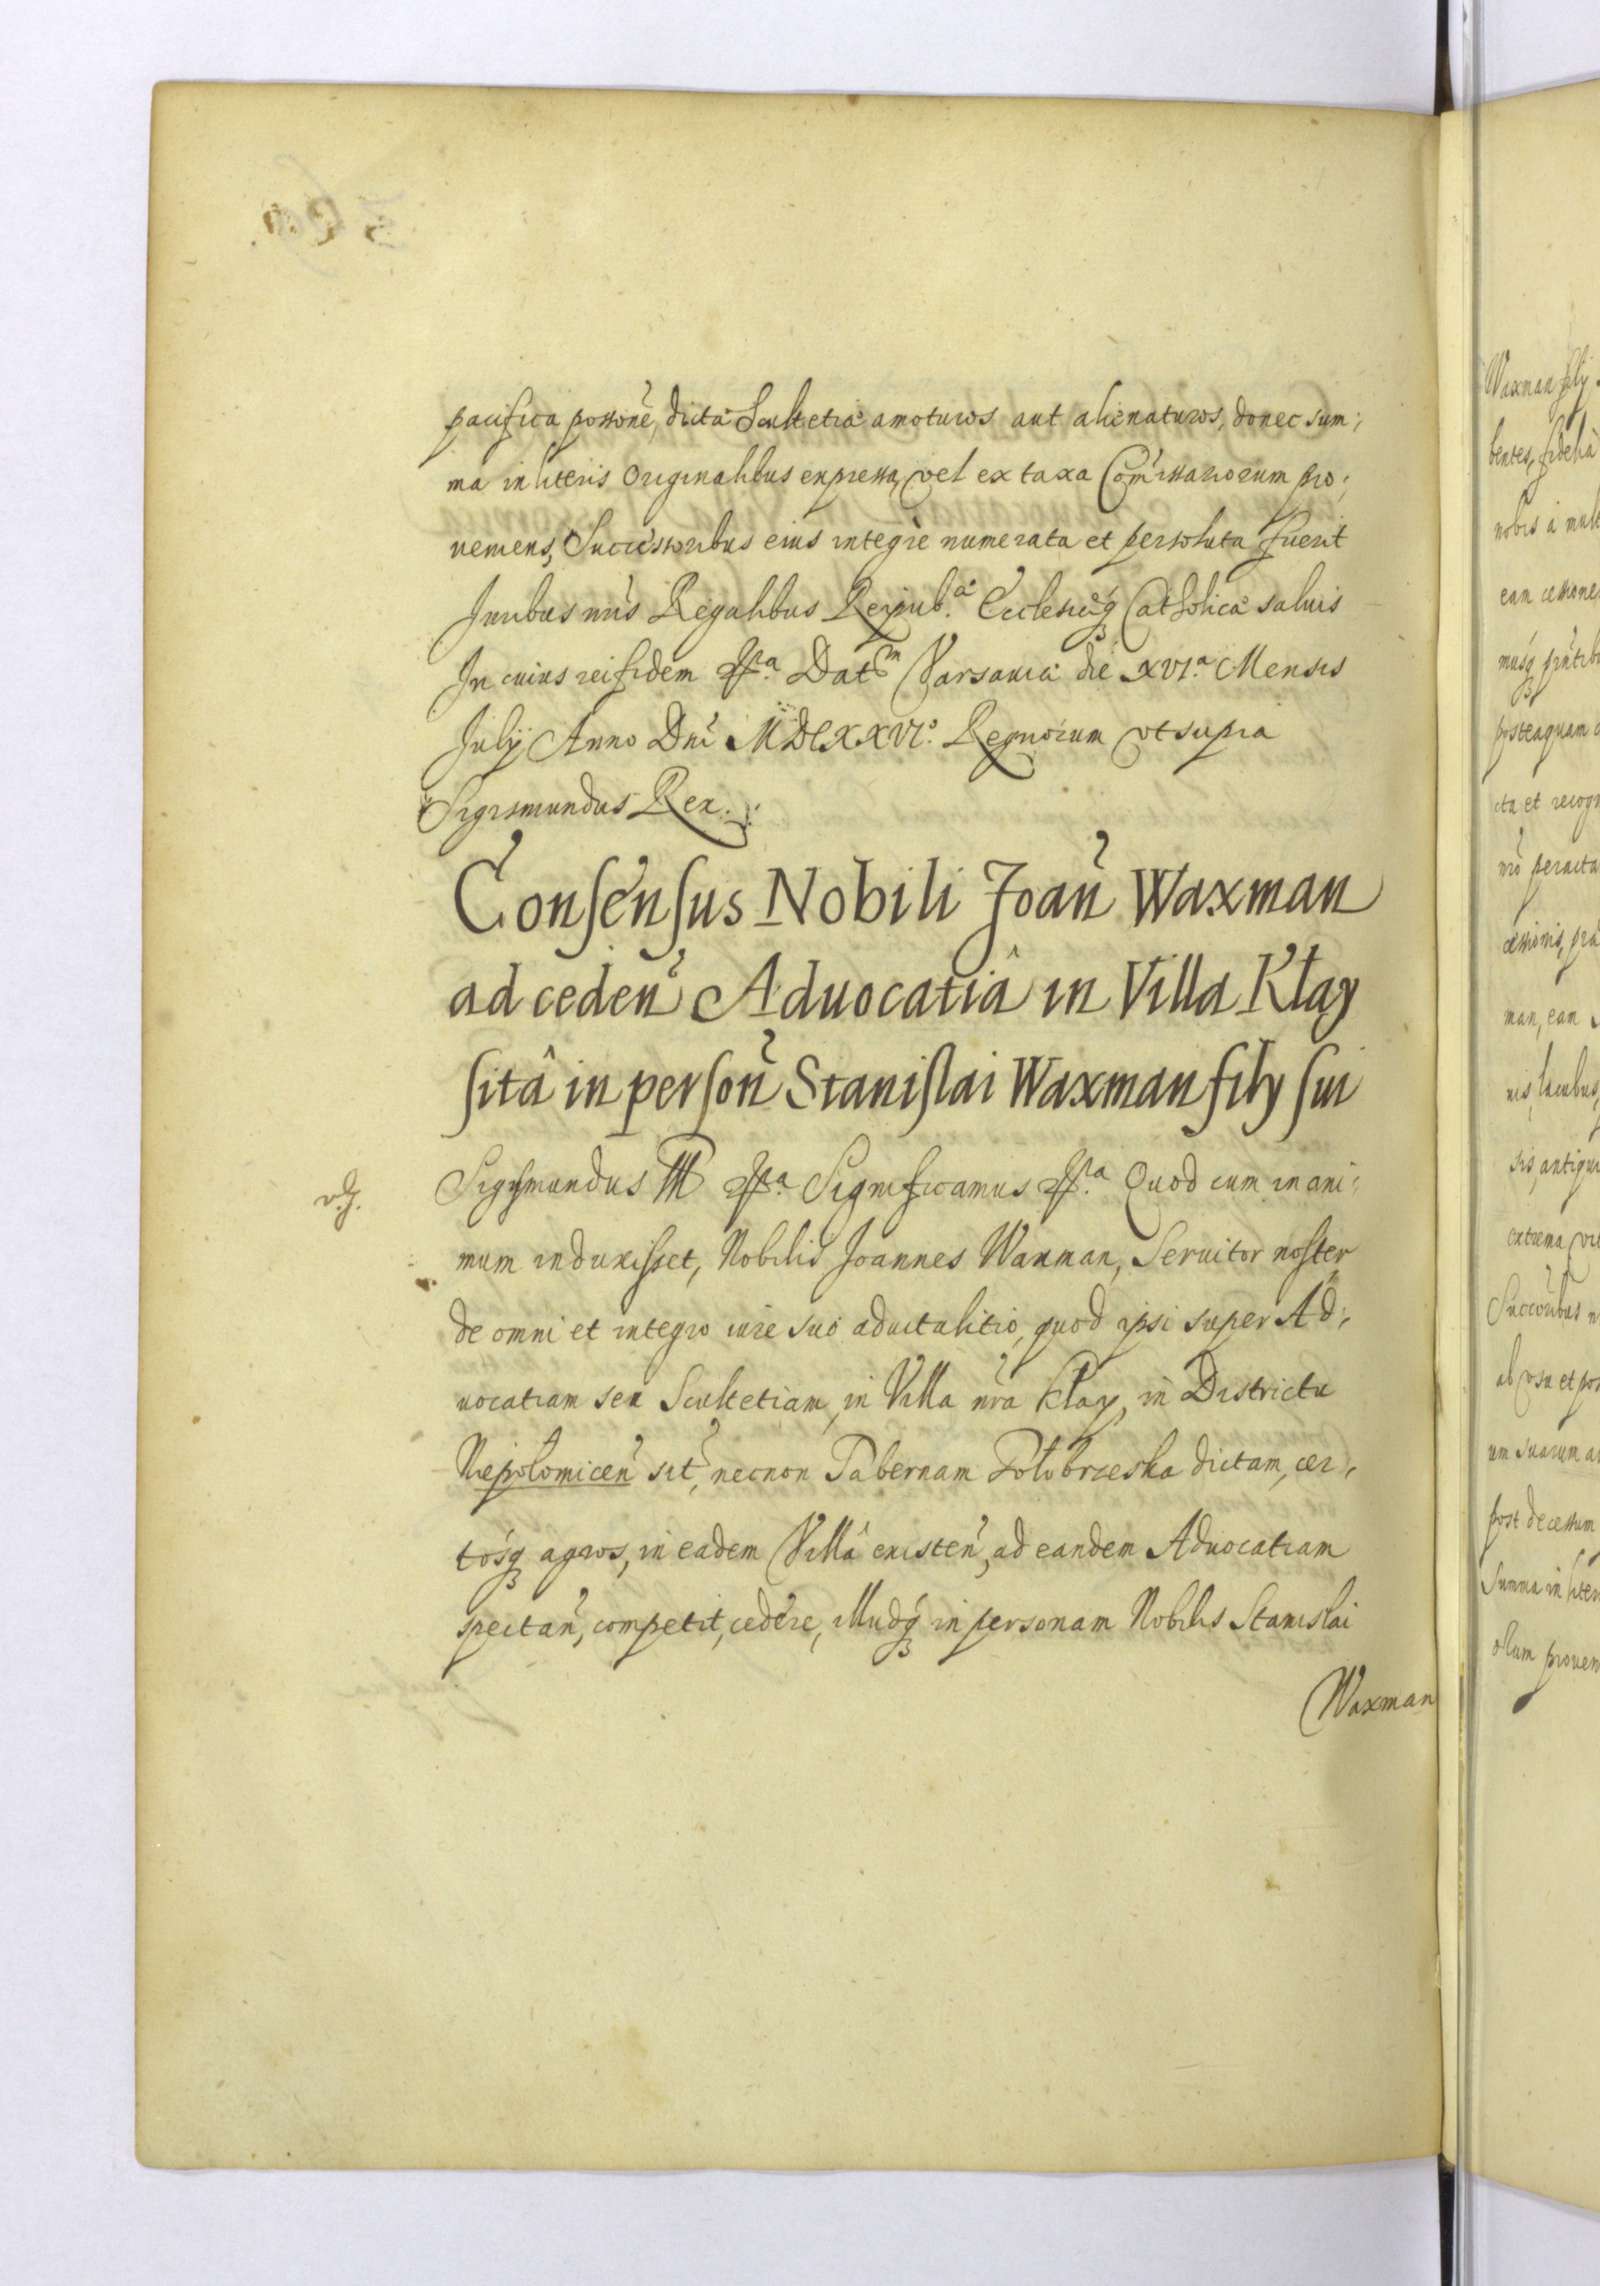 pacifica possone, dicta Scultetia amoturos aut alienaturos, donec sum:
ma in literis Originalibus expressa, vel ex taxa Comissariorum pro:
ueniens, Successoribus eius integre numerata et persoluta fuerit
Juribus nris Regalibus Reipub.a Ecclesiæq Catholicæ saluis
In cuius rei fidem Dat Varsauiæ die XVI.a Mensis
July Anno Dni MDCXXVI.o Regnorum vt supra
Sigismundus Rex.
Consensus Nobili Joan Waxman
ad ceden Aduocatiâ in Villa Kłay
sitâ in person Stanislai Waxman fily sui
Sigismundus III Significamus Quod cum in ani:
mum induxisset, Nobilis Joannes Waxman, Seruitor noster
de omni et integro iure suo aduitalitio, quod ipsi super Ad:
uocatiam seu Scultetiam, in Villa nra Kłay, in Districtu
Niepołomicen sit, necnon Tabernam dictam, cer:
tosq agros, in eadem Villâ existen, ad eandem Aduocatiam
spectan, competit, cedere, illudq in personam Nobilis Stanislai
Waxman
Waxman fily
bentes, fideliâ
nobis a mult
eam cessione
posteaquam
cta et recogn
nro peracta
cessionis, præ
man, eam
nis, lacubus,
sis, antiqui
extrema
Succoribus
ab vsu et pos
um suarum
post decessum
Summa in liter
olum prouen